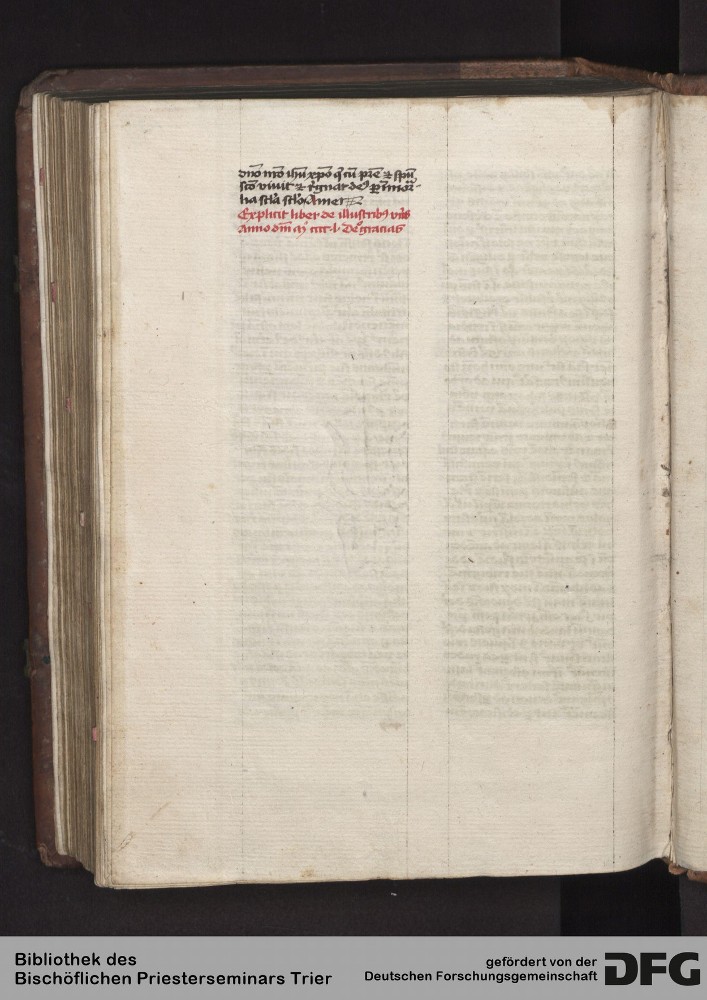 dno nro ihu xpo q cu pre ⁊ spu
sco viuit ⁊ regnat de⁹ p infinor
lia scła scło♃ Amen
Explicit liber de illustrib⁹ viris
Anno dm Mº cccc l Deo gracias
Bibliothek des
Bischöflichen Priesterseminars Trier
gefördert von der
Deutschen Forschungsgemeinschaft
DFG